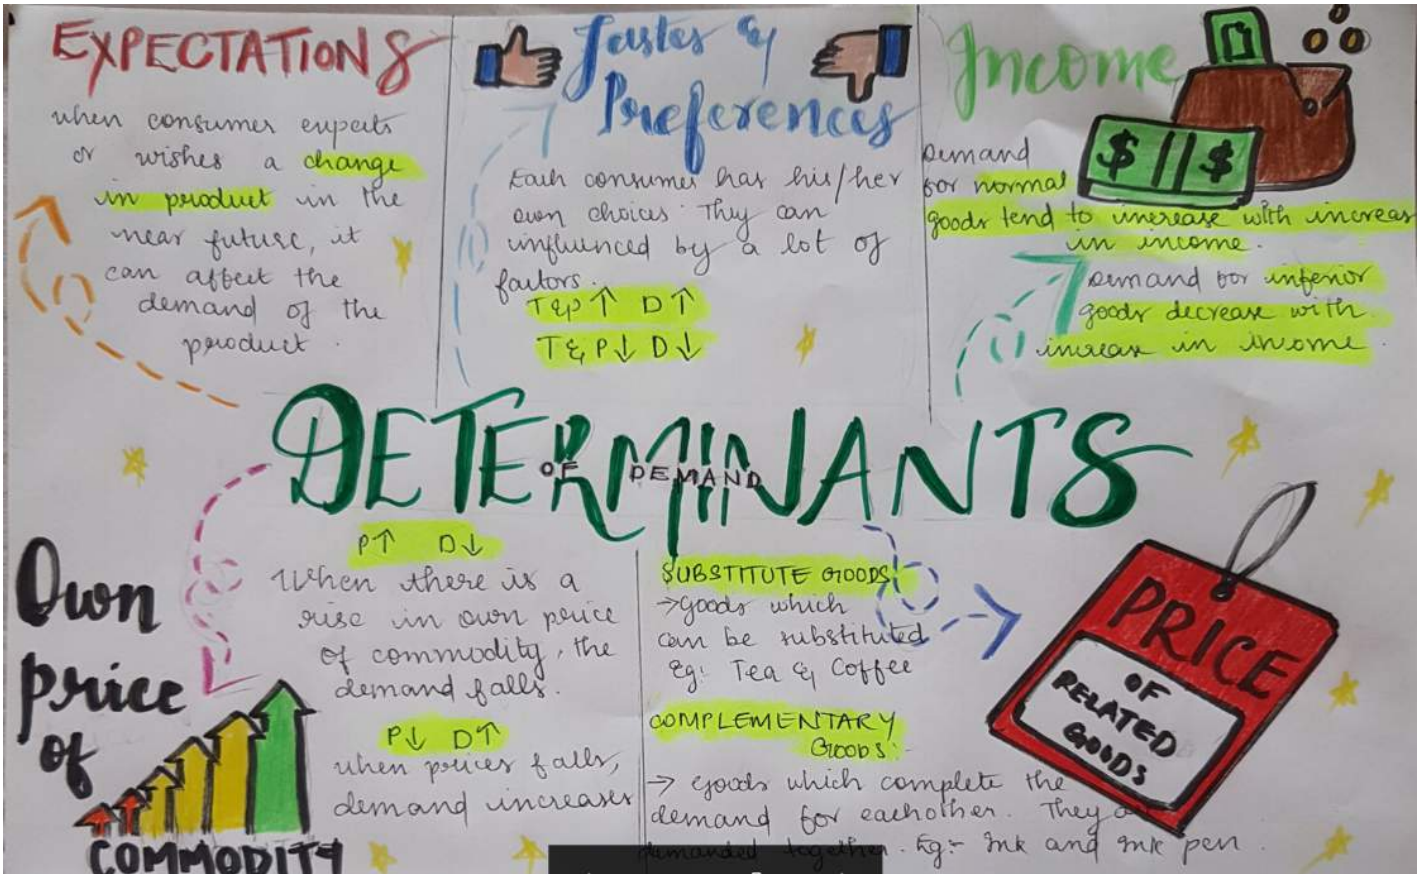 EXPECTATIONS
when consumer expects
or wishes a change
in product in the
near future, it
can affect the
demand of the
product.
Tastes &
Preferences
Each consumer has his/her
own choices. They can
influenced by a lot of
factors.
T&P↑ D↑
T&P↓ D↓
Income
$ || $
Demand
for normal
goods tend to increase with increas
in income.
Demand for inferior
goods decrease with
increase in income.
DETERMINANTS
OF DEMAND
Own
price
of
COMMODITY
P↑ D↓
When there is a
rise in own price
of commodity, the
demand falls.
P↓ D↑
when prices falls,
demand increases
SUBSTITUTE GOODS
→goods which
can be substituted
Eg: Tea & Coffee
COMPLEMENTARY
GOODS:-
→ goods which complete the
demand for eachother. They a
demanded together. Eg:- Ink and ink pen.
PRICE
OF
RELATED
GOODS